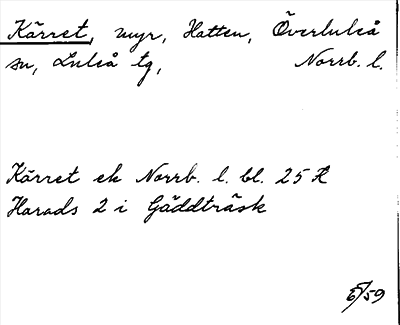 Kärret, myr, Hatten, Överluleå
sn, Luleå tg, Norrb. l.
Kärret ek Norrb. l. bl. 25
Harads 2 i Gäddträsk
/59